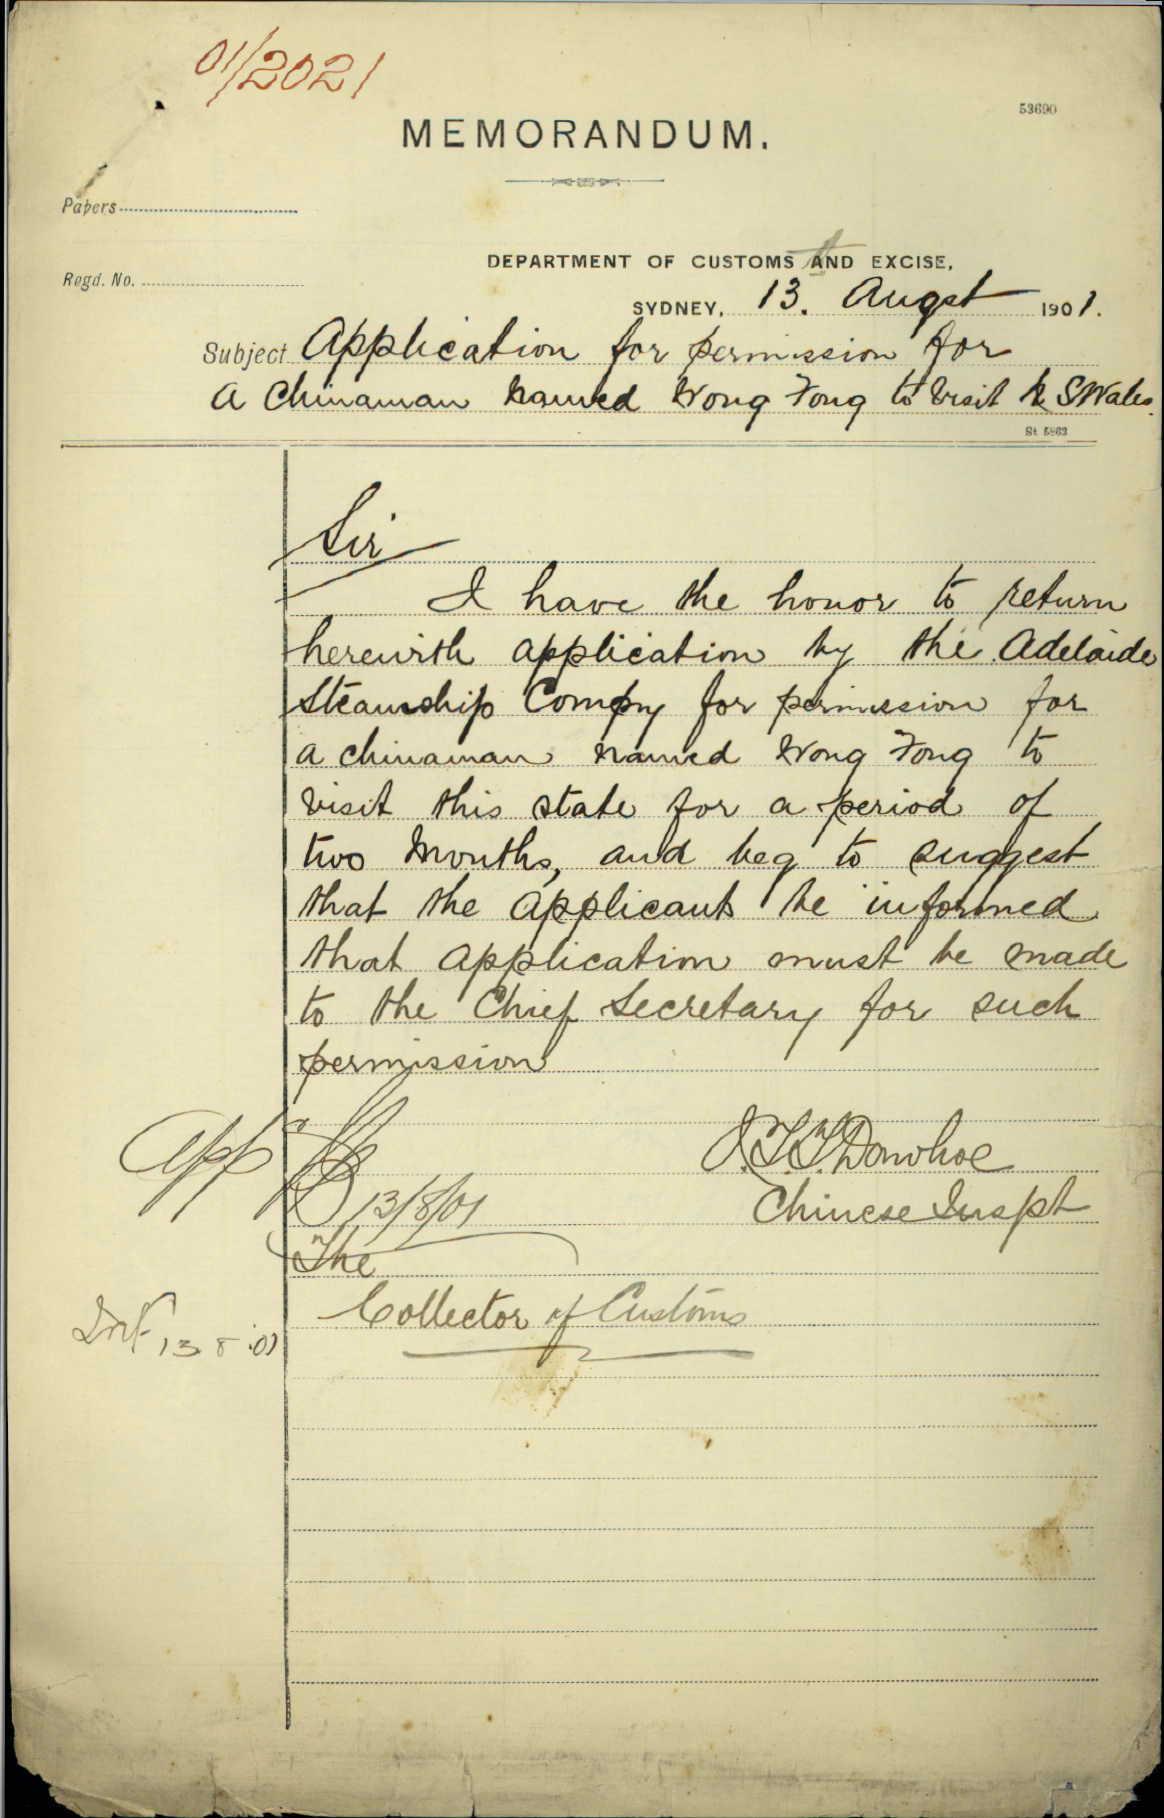 01/2021
53690
MEMORANDUM.
Papers
DEPARTMENT OF CUSTOMS AND EXCISE,
Regd. No.
SYDNEY, 13. Augst 1901.
Subject Application for permission for
a Chinaman named Wong Fong to visit N SWales.
St 5863
Sir
I have the honor to return
herewith application by the Adelaide
Steamship Compy for permission for
a chinaman named Wong Fong to
visit this state for a period of
two months, and beg to suggest
that the applicants be informed
that application must be made
to the Chief Secretary for such
permission
App
J.T.T. Donohoe
13/8/01
Chinese Inspt
The
Collector of Customs
13 8 01